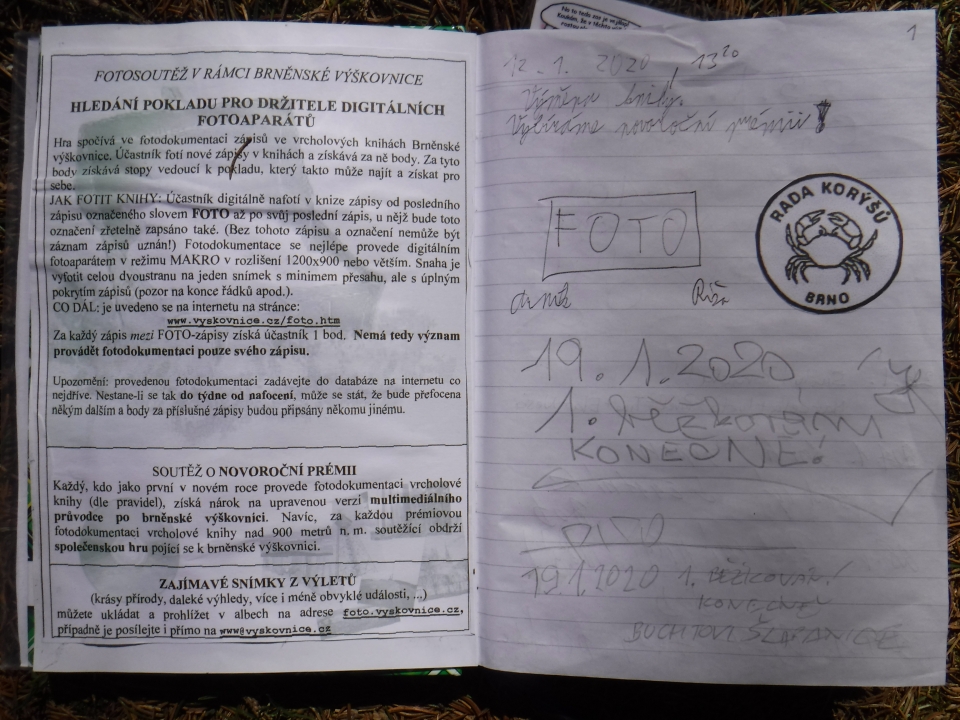 FOTOSOUTĚŽ V RÁMCI BRNĚNSKÉ VÝŠKOVNICE
HLEDÁNÍ POKLADU PRO DRŽITELE DIGITÁLNÍCH
FOTOAPARÁTŮ
Hra spočívá ve fotodokumentaci zápisů ve vrcholových knihách Brněnské
výškovnice. Účastník fotí nové zápisy v knihách a získává za ně body. Za tyto
body získává stopy vedoucí k pokladu, který takto může najít a získat pro
sebe.
JAK FOTIT KNIHY: Účastník digitálně nafotí v knize zápisy od posledního
zápisu označeného slovem FOTO až po svůj poslední zápis, u nějž bude toto
označení zřetelně zapsáno také. (Bez tohoto zápisu a označení nemůže být
záznam zápisů uznán!) Fotodokumentace se nejlépe provede digitálním
fotoaparátem v režimu MAKRO v rozlišení 1200x900 nebo větším. Snaha je
vyfotit celou dvoustranu na jeden snímek s minimem přesahu, ale s úplným
pokrytím zápisů (pozor na konce řádků apod.).
CO DÁL: je uvedeno se na internetu na stránce:
www.vyskovnice.cz/foto.htm
Za každý zápis mezi FOTO-zápisy získá účastník 1 bod. Nemá tedy význam
provádět fotodokumentaci pouze svého zápisu.
Upozornění: provedenou fotodokumentaci zadávejte do databáze na internetu co
nejdříve. Nestane-li se tak do týdne od nafocení, může se stát, že bude přefocena
někým dalším a body za příslušné zápisy budou připsány někomu jinému.
SOUTĚŽ O NOVOROČNÍ PRÉMII
Každý, kdo jako první v novém roce provede fotodokumentaci vrcholové
knihy (dle pravidel), získá nárok na upravenou verzi multimediálního
průvodce po brněnské výškovnici. Navíc, za každou prémiovou
fotodokumentaci vrcholové knihy nad 900 metrů n. m. soutěžící obdrží
společenskou hru pojící se k brněnské výškovnici.
ZAJÍMAVÉ SNÍMKY Z VÝLETŮ
(krásy přírody, daleké výhledy, více i méně obvyklé události, ...)
můžete ukládat a prohlížet v albech na adrese foto.vyskovnice.cz,
případně je posílejte i přímo na www@vyskovnice.cz
1
12. 1. 2020, 13 20
Výměna knihy.
Vybíráme novoroční prémii!
FOTO
RADA KORÝŠŮ
BRNO
19. 1. 2020
1. běžkování
KONEČNĚ!
19.1.2020 1. BĚŽKOVÁNÍ
KONEČNĚ